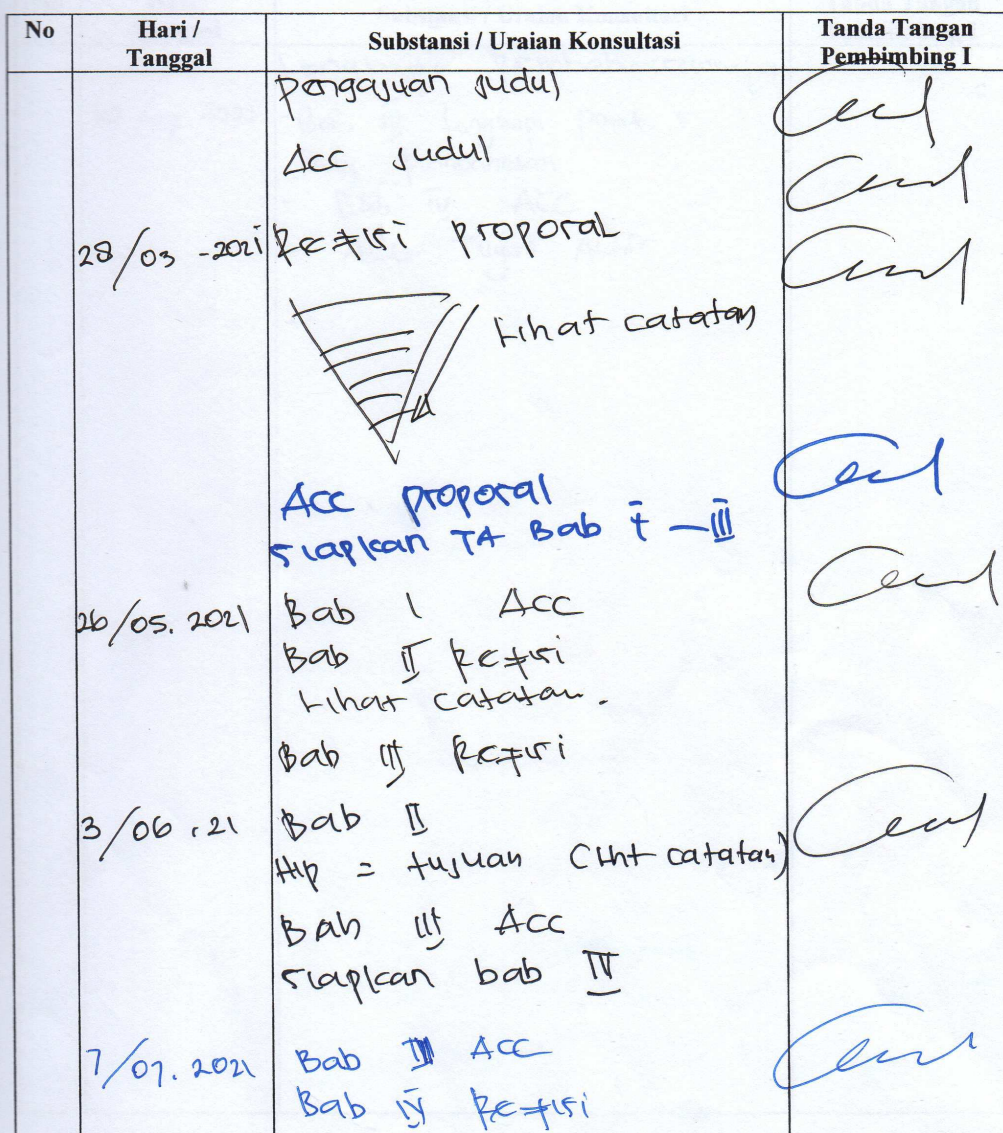 No Hari / Tanggal Substansi / Uraian Konsultasi Tanda Tangan Pembimbing I
pengajuan judul
Acc judul
28/03 -2021 Refisi proposal
Lihat catatan
Acc proposal
siapkan TA Bab I - III
26/05. 2021 Bab I Acc
Bab II Refisi
Lihat catatan.
Bab III Refisi
3/06 .21 Bab II
Hip = tujuan (Lht catatan)
Bab III Acc
siapkan bab IV
7/07. 2021 Bab Acc
Bab IV Refisi